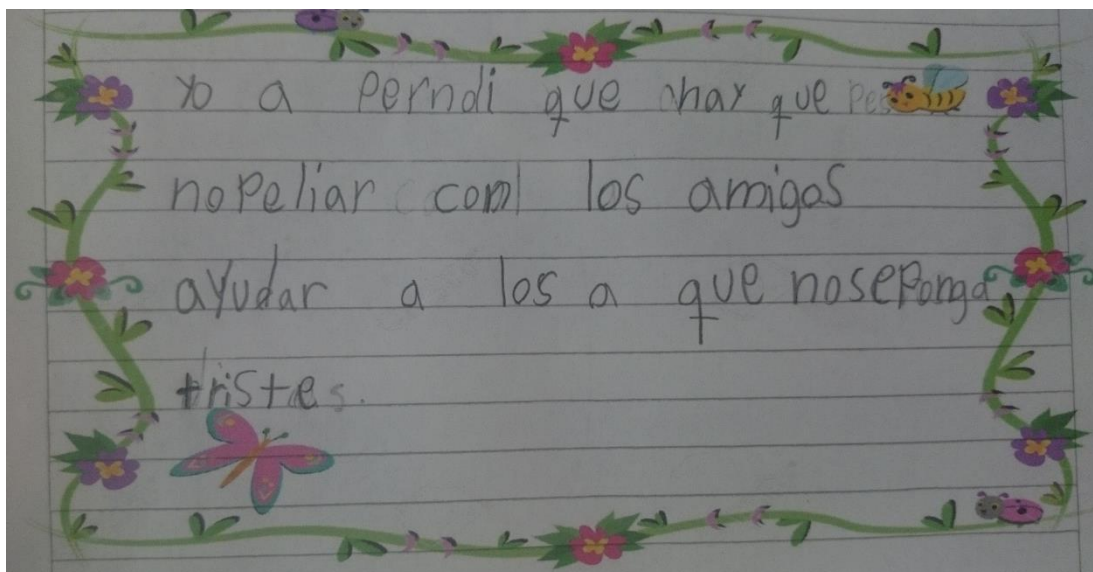 yo a perndi que hay que
nopeliar com los amigos
ayudar a los a que noseponga
tristes.